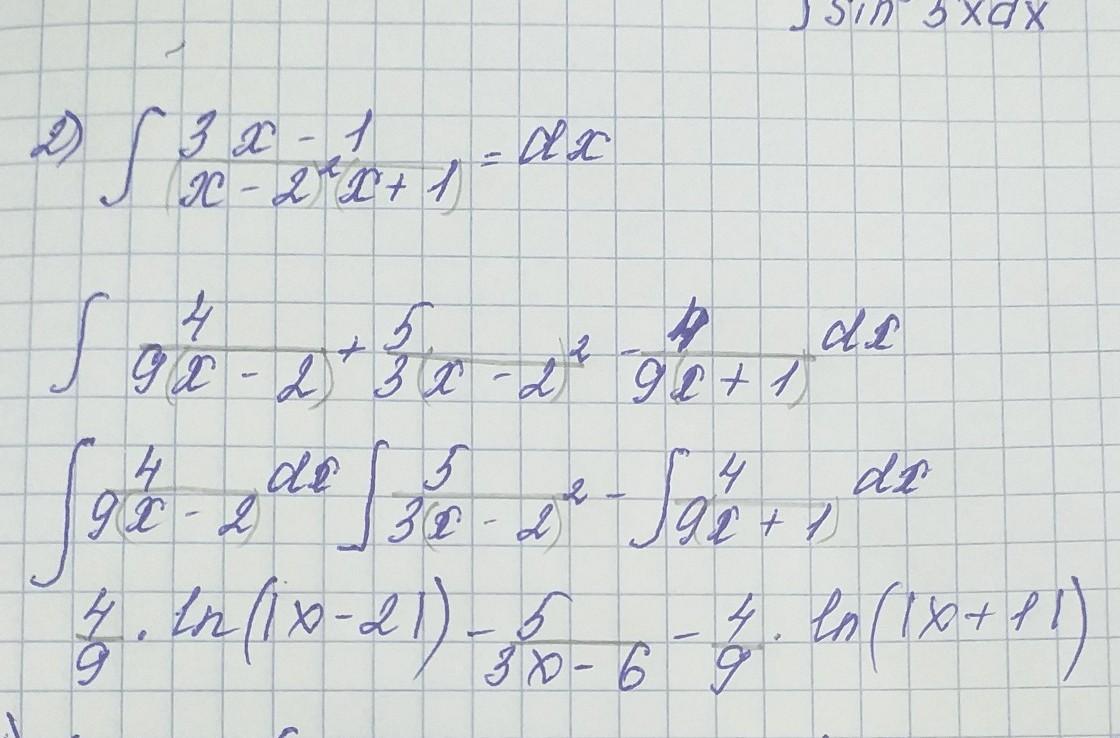 ∫ sin 5xdx
2) ∫ 3x - 1 / (x - 2)²(x + 1) = dx
∫ 4 / 9(x - 2) + 5 / 3(x - 2)² - 4 / 9(x + 1) dx
∫ 4 / 9(x - 2) dx ∫ 5 / 3(x - 2)² - ∫ 4 / 9x + 1) dx
4 / 9 · ln(|x - 2|) - 5 / 3x - 6 - 4 / 9 · ln(|x + 1|)